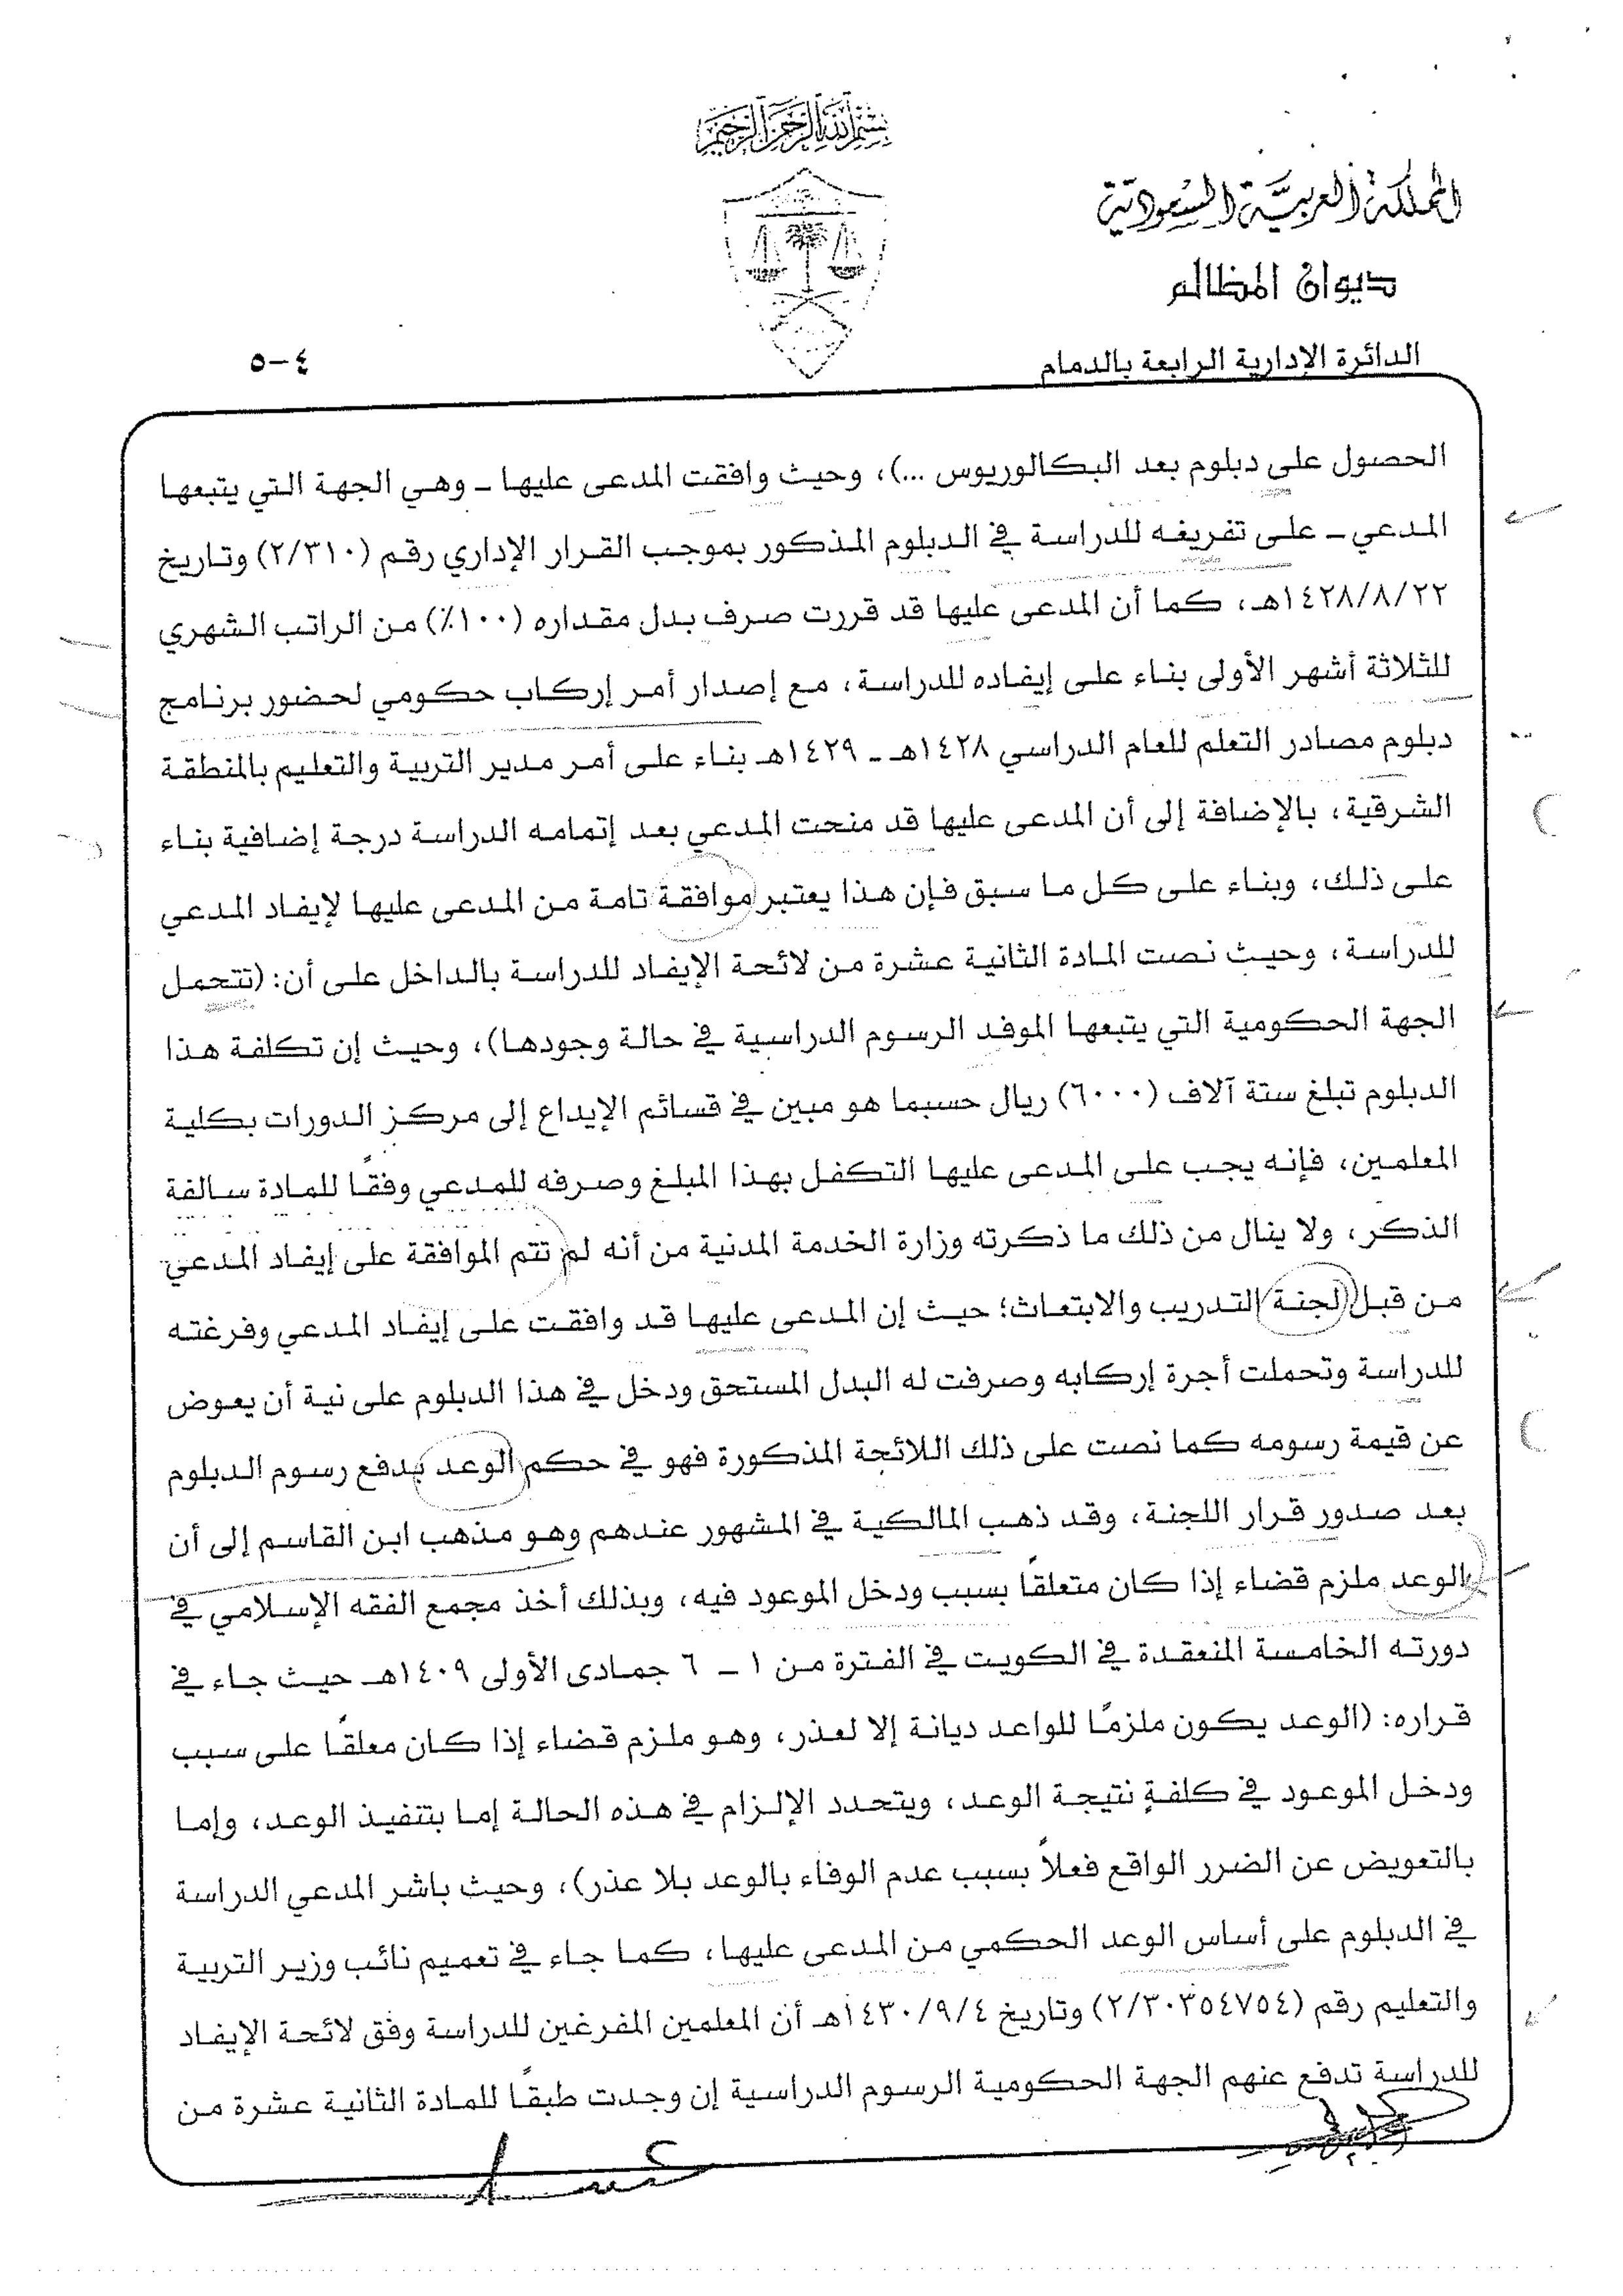 بسم الله الرحمن الرحيم
المملكة العربية السعودية
ديوان المظالم
الدائرة الإدارية الرابعة بالدمام
٤-٥
الحصول على دبلوم بعد البكالوريوس ...)، وحيث وافقت المدعى عليها ـ وهي الجهة التي يتبعها
المدعي ـ على تفريغه للدراسة في الدبلوم المذكور بموجب القرار الإداري رقم (٢/٣١٠) وتاريخ
١٤٢٨/٨/٢٢هـ، كما أن المدعى عليها قد قررت صرف بدل مقداره (١٠٠٪) من الراتب الشهري
للثلاثة أشهر الأولى بناء على إيفاده للدراسة، مع إصدار أمر إركاب حكومي لحضور برنامج
دبلوم مصادر التعلم للعام الدراسي ١٤٢٨هـ ـ ١٤٢٩هـ بناء على أمر مدير التربية والتعليم بالمنطقة
الشرقية، بالإضافة إلى أن المدعى عليها قد منحت المدعي بعد إتمامه الدراسة درجة إضافية بناء
على ذلك، وبناء على كل ما سبق فإن هذا يعتبر موافقة تامة من المدعى عليها لإيفاد المدعي
للدراسة، وحيث نصت المادة الثانية عشرة من لائحة الإيفاد للدراسة بالداخل على أن: (تتحمل
الجهة الحكومية التي يتبعها الموفد الرسوم الدراسية في حالة وجودها)، وحيث إن تكلفة هذا
الدبلوم تبلغ ستة آلاف (٦٠٠٠) ريال حسبما هو مبين في قسائم الإيداع إلى مركز الدورات بكلية
المعلمين، فإنه يجب على المدعى عليها التكفل بهذا المبلغ وصرفه للمدعي وفقًا للمادة سالفة
الذكر، ولا ينال من ذلك ما ذكرته وزارة الخدمة المدنية من أنه لم تتم الموافقة على إيفاد المدعي
من قبل لجنة التدريب والابتعاث؛ حيث إن المدعى عليها قد وافقت على إيفاد المدعي وفرغته
للدراسة وتحملت أجرة إركابه وصرفت له البدل المستحق ودخل في هذا الدبلوم على نية أن يعوض
عن قيمة رسومه كما نصت على ذلك اللائحة المذكورة فهو في حكم الوعد بدفع رسوم الدبلوم
بعد صدور قرار اللجنة، وقد ذهب المالكية في المشهور عندهم وهو مذهب ابن القاسم إلى أن
الوعد ملزم قضاء إذا كان متعلقًا بسبب ودخل الموعود فيه، وبذلك أخذ مجمع الفقه الإسلامي في
دورته الخامسة المنعقدة في الكويت في الفترة من ١ ـ ٦ جمادى الأولى ١٤٠٩هـ حيث جاء في
قراره: (الوعد يكون ملزمًا للواعد ديانة إلا لعذر، وهو ملزم قضاء إذا كان معلقًا على سبب
ودخل الموعود في كلفةٍ نتيجة الوعد، ويتحدد الإلزام في هذه الحالة إما بتنفيذ الوعد، وإما
بالتعويض عن الضرر الواقع فعلاً بسبب عدم الوفاء بالوعد بلا عذر)، وحيث باشر المدعي الدراسة
في الدبلوم على أساس الوعد الحكمي من المدعى عليها، كما جاء في تعميم نائب وزير التربية
والتعليم رقم (٢/٣٠٣٥٤٧٥٤) وتاريخ ١٤٣٠/٩/٤هـ أن المعلمين المفرغين للدراسة وفق لائحة الإيفاد
للدراسة تدفع عنهم الجهة الحكومية الرسوم الدراسية إن وجدت طبقًا للمادة الثانية عشرة من